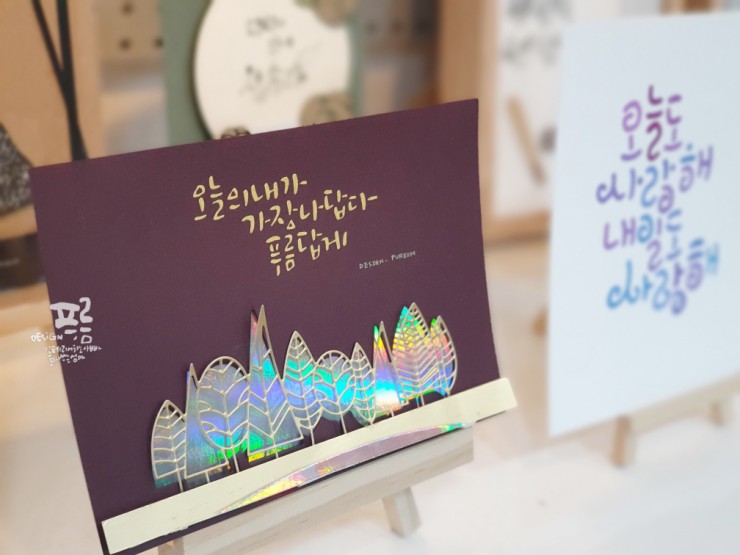 오늘의 내가
가장 나답다
푸름답게
DESIGN. PUREUM
오늘도
사랑해
내일도
사랑해
DESIGN 푸름